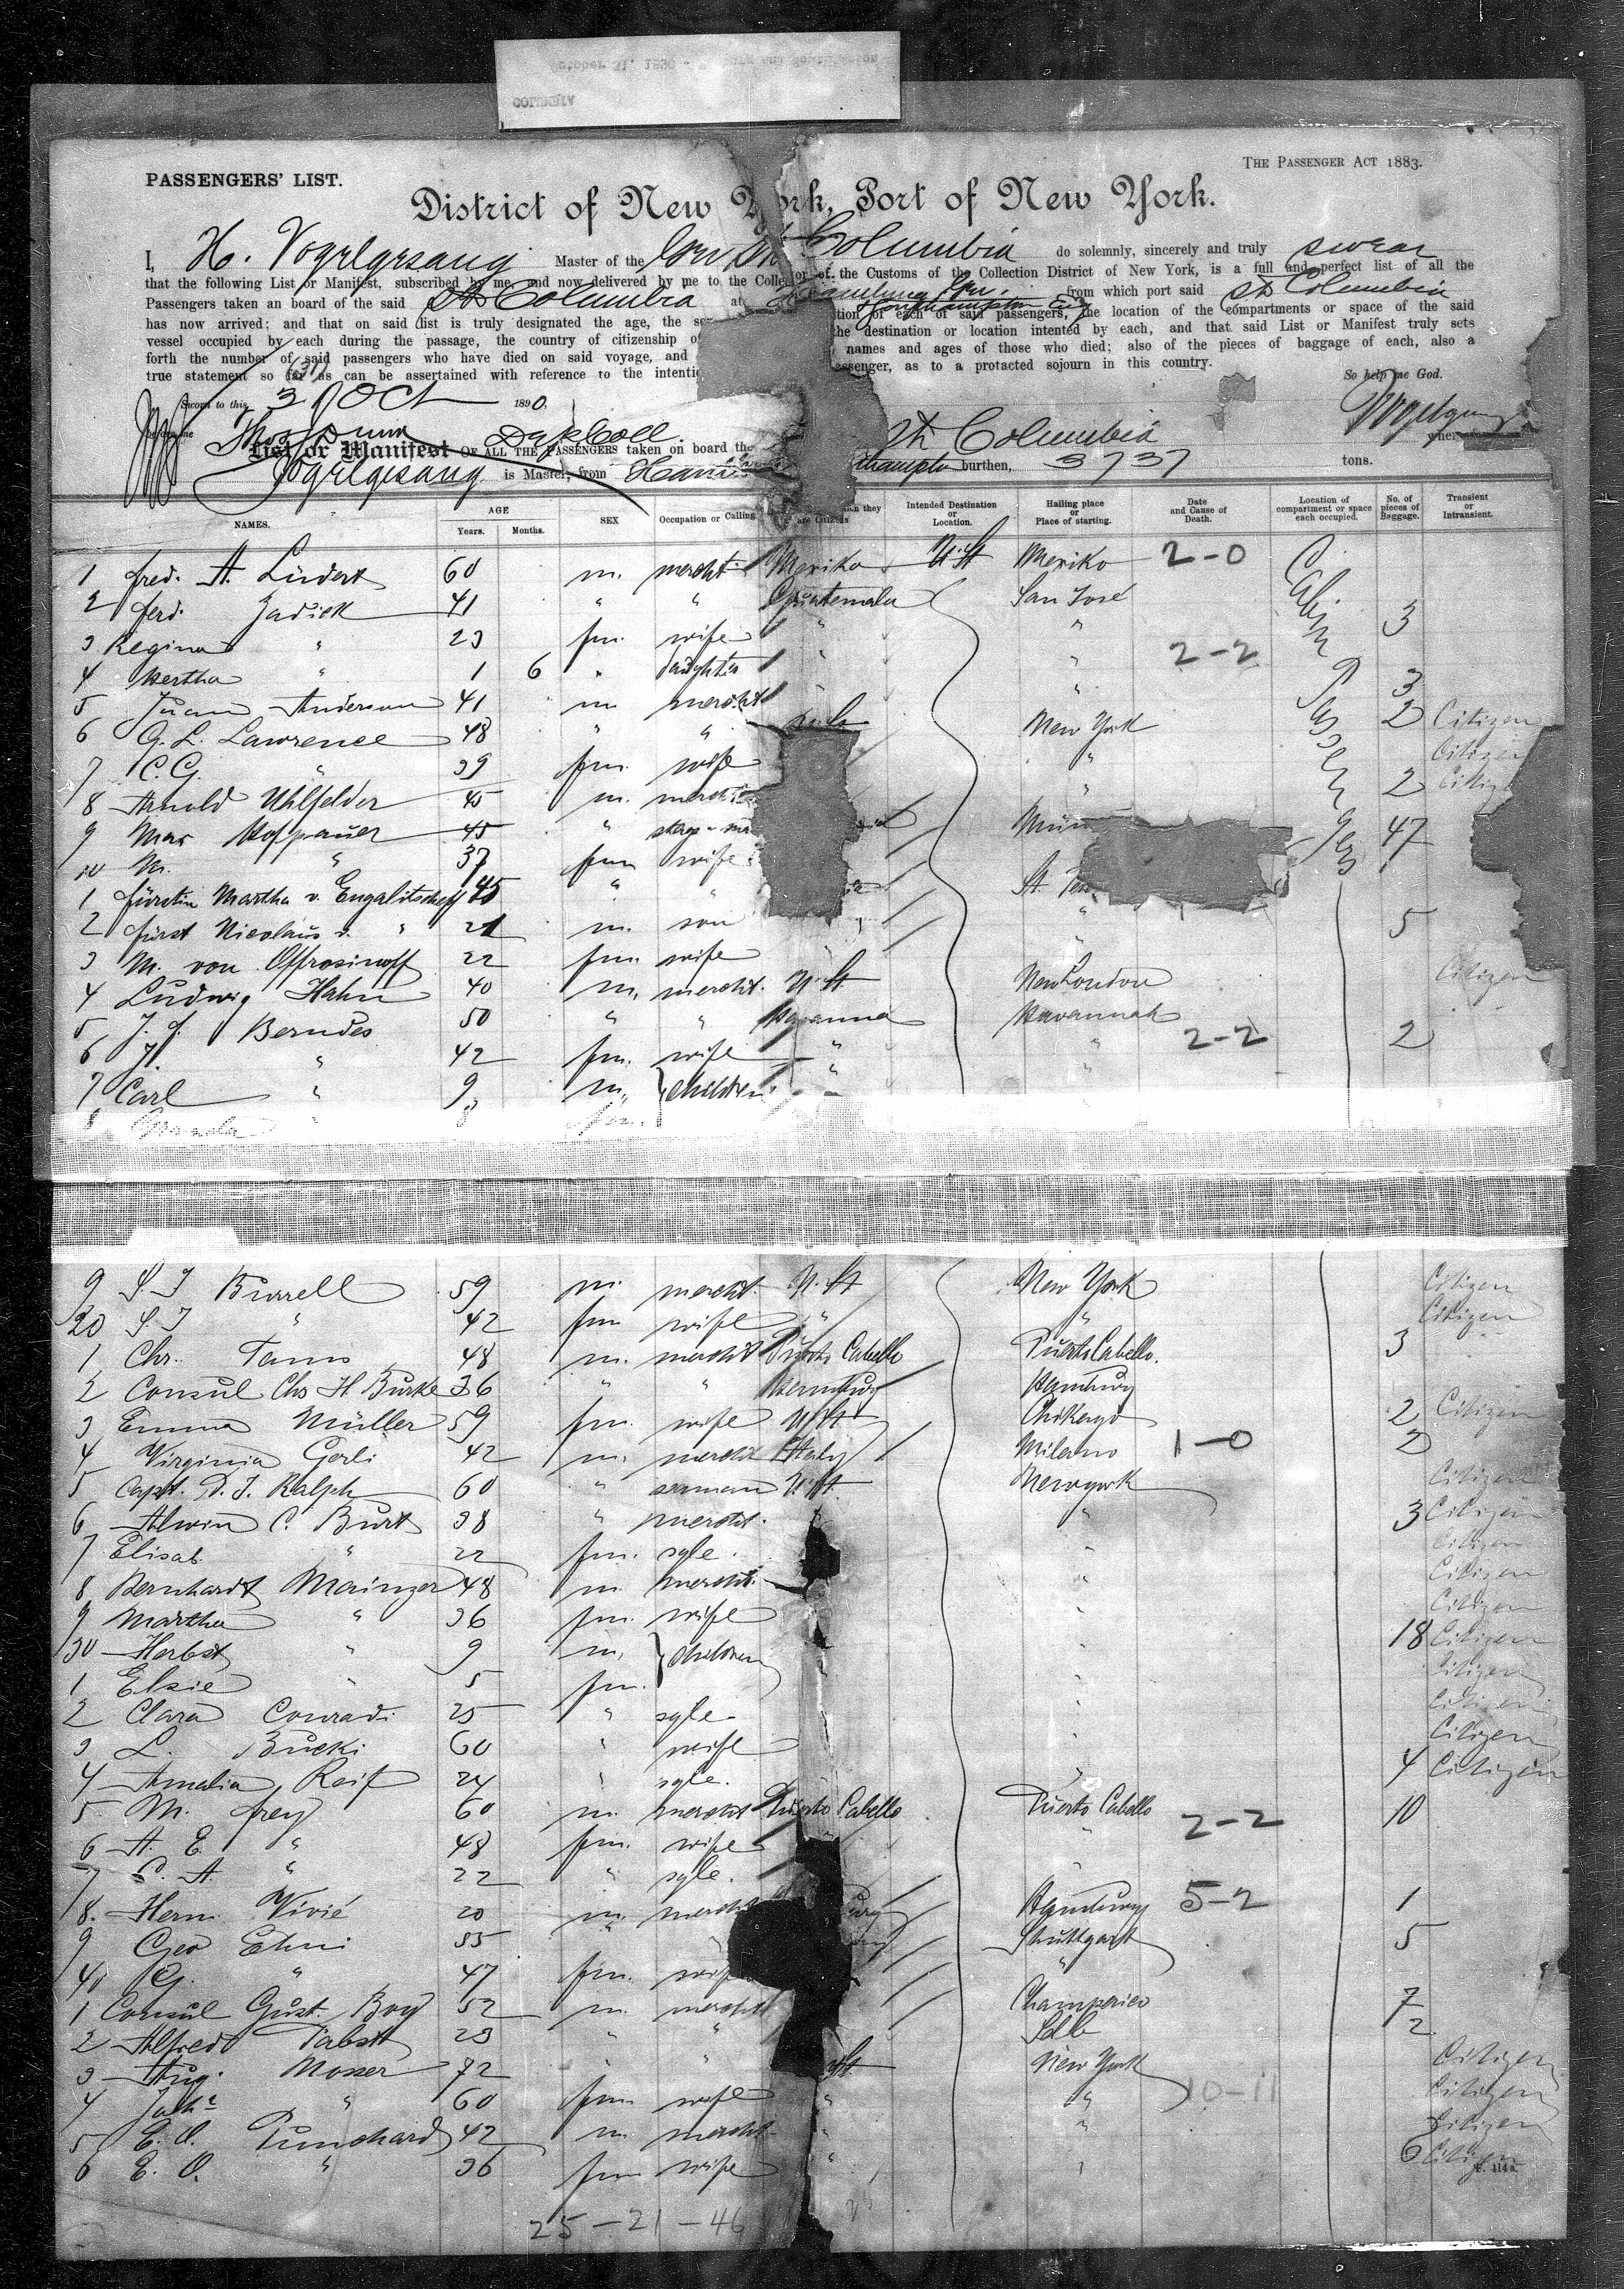 PASSENGERS' LIST.
THE PASSENGER ACT 1883.
District of New York, Port of New York.
I, H. Vogelgesang Master of the Columbia do solemnly, sincerely and truly swear
that the following List or Manifest, subscribed by me, and now delivered by me to the Collector of the Customs of the Collection District of New York, is a full and perfect list of all the
Passengers taken an board of the said St Columbia at Hamburg from which port said St Columbia
has now arrived; and that on said list is truly designated the age, the se tion of each of said passengers, the location of the compartments or space of the said
vessel occupied by each during the passage, the country of citizenship of the destination or location intented by each, and that said List or Manifest truly sets
forth the number of said passengers who have died on said voyage, and names and ages of those who died; also of the pieces of baggage of each, also a
true statement so far as can be assertained with reference to the intentio assenger, as to a protacted sojourn in this country.
So help me God.
Sworn to this 31 Oct 1890.
Vogelgesang
List or Manifest OF ALL THE PASSENGERS taken on board the St Columbia
Vogelgesang is Master, from hampton burthen, 3737 tons.
NAMES. AGE Years. Months. SEX Occupation or Calling are Citizens Intended Destination or Location. Hailing place or Place of starting. Date and Cause of Death. Location of compartment or space each occupied. No. of pieces of Baggage. Transient or Intransient.
1 fred. A. Lüders 60 m. mercht. Mexiko U. St Mexiko 2-0 Cabin Passengers
2 ferd. Zadick 41 " " Guatemala San José 3
3 Regina " 23 fm. wife " "
4 Bertha " 1 6 " daughter " " 2-2
5 Juan Anderson 41 m mercht " 3
6 G. L. Lawrence 48 " " New York 2 Citizen
7 C. G. " 39 fm. wife " Citizen
8 Arnold Uhlfelder 45 m. mercht " 2 Citizen
9 Max Hoffpauer 45 " 47
10 M. " 37 fm wife
1 fürstin Martha v. Engalitscheff 45 " " St.
2 fürst Nicolaus v. " 21 m. son " 5
3 M. von Offrosinoff 22 fm. wife
4 Ludwig Hahn 40 m. mercht. U. St New London Citizen
5 J. f. Berndes 50 " " Havanna Havannah
6 J. " 42 fm. wife " " 2-2 2
7 Carl " 9 m. children "
8
9 S. J Burrell 59 m. mercht. U. St New York Citizen
20 S. J " 42 fm wife " " Citizen
1 Chr. Tams 48 m. mercht Puerto Cabello Puerto Cabello. 3
2 Consul Chs H Burke 36 " " Hamburg Hamburg
3 Emma Müller 59 fm. wife U. St Chikago 2 Citizen
4 Virginia Gerli 42 m. mercht Italy Milano 1-0 2
5 Capt. D. J. Ralph 60 " seaman U. St Newyork Citizen
6 Alwin C. Burt 38 " mercht. " 3 Citizen
7 Elisab. " 22 fm. sgle. " Citizen
8 Bernhardt Mainzer 48 m mercht. " Citizen
9 Martha " 36 fm. wife " Citizen
30 Herbst " 9 m. children 18 Citizen
1 Elsie " 5 fm. " Citizen
2 Clara Conradi 25 " sgle. " Citizen
3 L. Bucki 60 " wife " Citizen
4 Amalia Reif 24 " sgle. " 4 Citizen
5 M. frey 60 m. mercht Puerto Cabello Puerto Cabello 10
6 A. E. " 48 fm. wife " 2-2
7 C. A. " 22 " sgle. "
8. Herm. Vivié 20 m. mercht Hamburg 5-2 1
9 Geo Ehni 55 " Stuttgart 5
40 G. " 47 fm. wife "
1 Consul Gust. Boy 52 m mercht Champerico 7
2 Alfred Pabst 23 " " Selb 2
3 Aug. Mosser 72 " " New York Citizen
4 " 60 fm wife " " 10-11 Citizen
5 E. O. Punchard 42 m. mercht. " " Citizen
6 E. O. " 36 fm wife " 6 Citizen
25-21-46